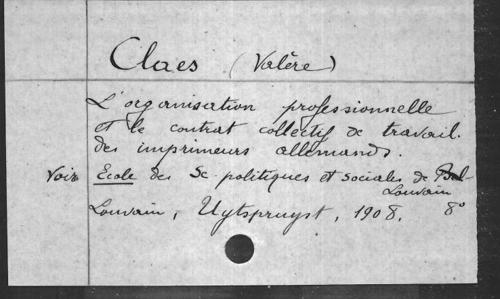 Claes (Valère)
L'organisation professionnelle
et le contrat collectif de travail
des imprimeurs allemands.
Voir Ecole des Sc. politiques et sociales de
Louvain
Louvain, Uytspruyst, 1908. 8°